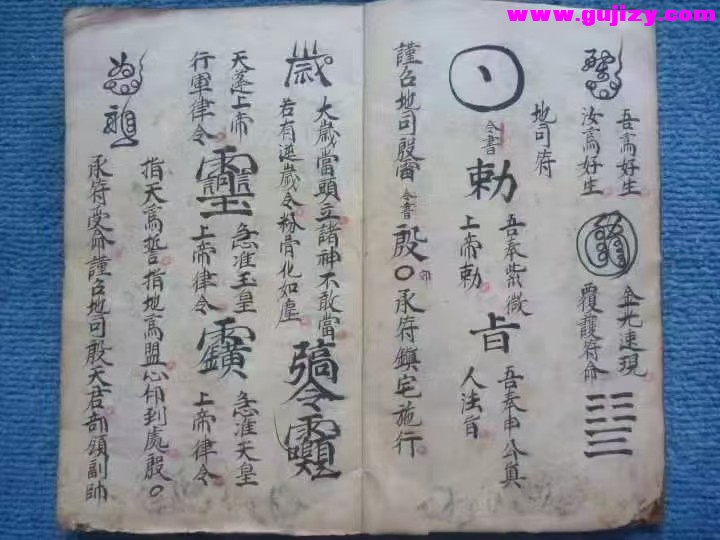 www.gujizy.com
吾為好生
汝為好生
金光速現
覆護符命
地司符
令書
勅
吾奉紫微
上帝勅
旨
吾奉申公真
人法旨
謹召地司殷
令書
殷〇
承符鎮宅施行
歲
大歲當頭立諸神不敢當
若有逆歲令粉骨化如塵
天蓬上帝
行軍律令
急准玉皇
上帝律令
急准天皇
上帝律令
指天為誓指地為盟心印到處殷〇
承符受命謹召地司殷天君部領副帥